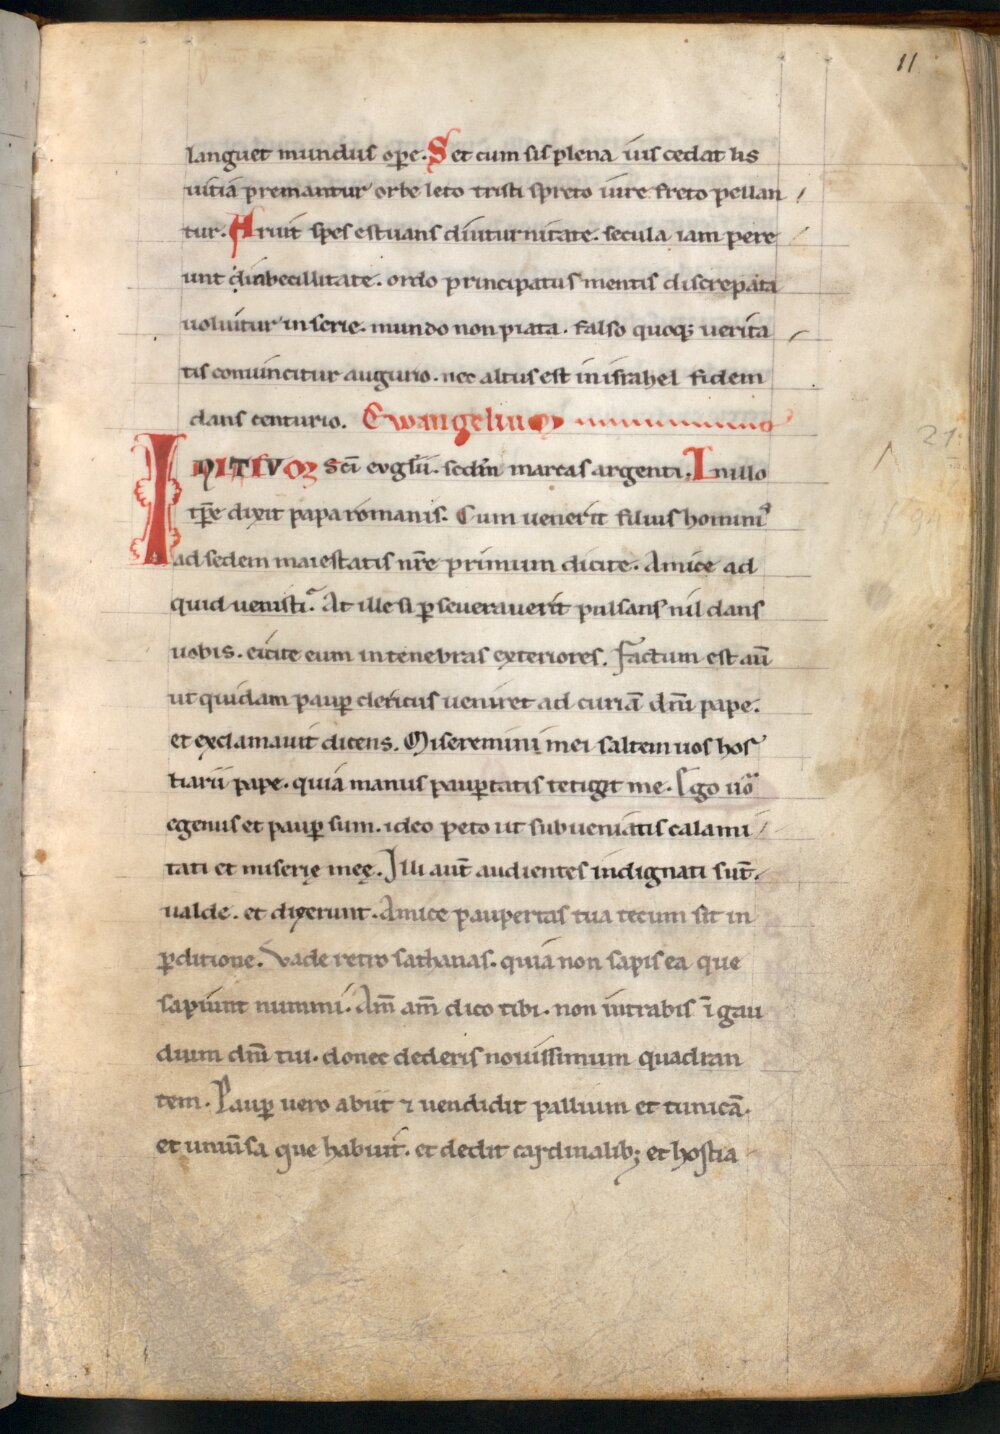 11
languet mundus ope. Set cum sis plena ius cedat lis
uitia premantur orbe leto tristi spreto iure freto pellan
tur. Aruit spes estuans diuturnitate. secula iam pere
unt dinbecillitate. ordo principatus mentis discrepata
uoluitur in serie. mundo non piata. falso quoq; uerita
tis conuincitur augurio. nec altus est in israhel fidem
dans centurio. Ewangelium
21.
INITIVM Sci̅ evgl̅ii. sed̅m marcas argenti. In illo
tp̅re dixit papa romanis. Cum uenerit filius homini᾽
ad sedem maiestatis nr̅e primum dicite. Amice ad
quid uenisti. At ille si p̱seuerauerit pulsans nil dans
uobis. eicite eum in tenebras exteriores. Factum est au̅
ut quidam paup̱ clericus ueniret ad curia̅ dn̅i pape.
et exclamauit dicens. Miseremini mei saltem uos hos
tiarii pape. quia manus paup̱tatis tetigit me. Ego uo̅
egenus et paup̱ sum. ideo peto ut subueniatis calami
tati et miserię meę. Illi aut̅ audientes indignati su̅t.
ualde. et dixerunt. Amice paupertas tua tecum sit in
p̱ditione. Vade retro sathanas. quia non sapis ea que
sapiunt nummi. Am̅ am̅ dico tibi. non intrabis i̅ gau
dium dn̅i tui. donec dederis nouissimum quadran
tem. Paup̱ uero abiit ⁊ uendidit pallium et tunica̅.
et uniu̅sa que habuit. et dedit cardinalib; et hostia